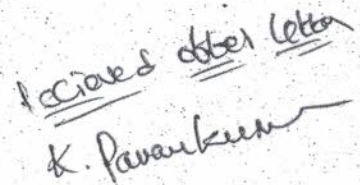 recieved offer letter
K. Pavankumar